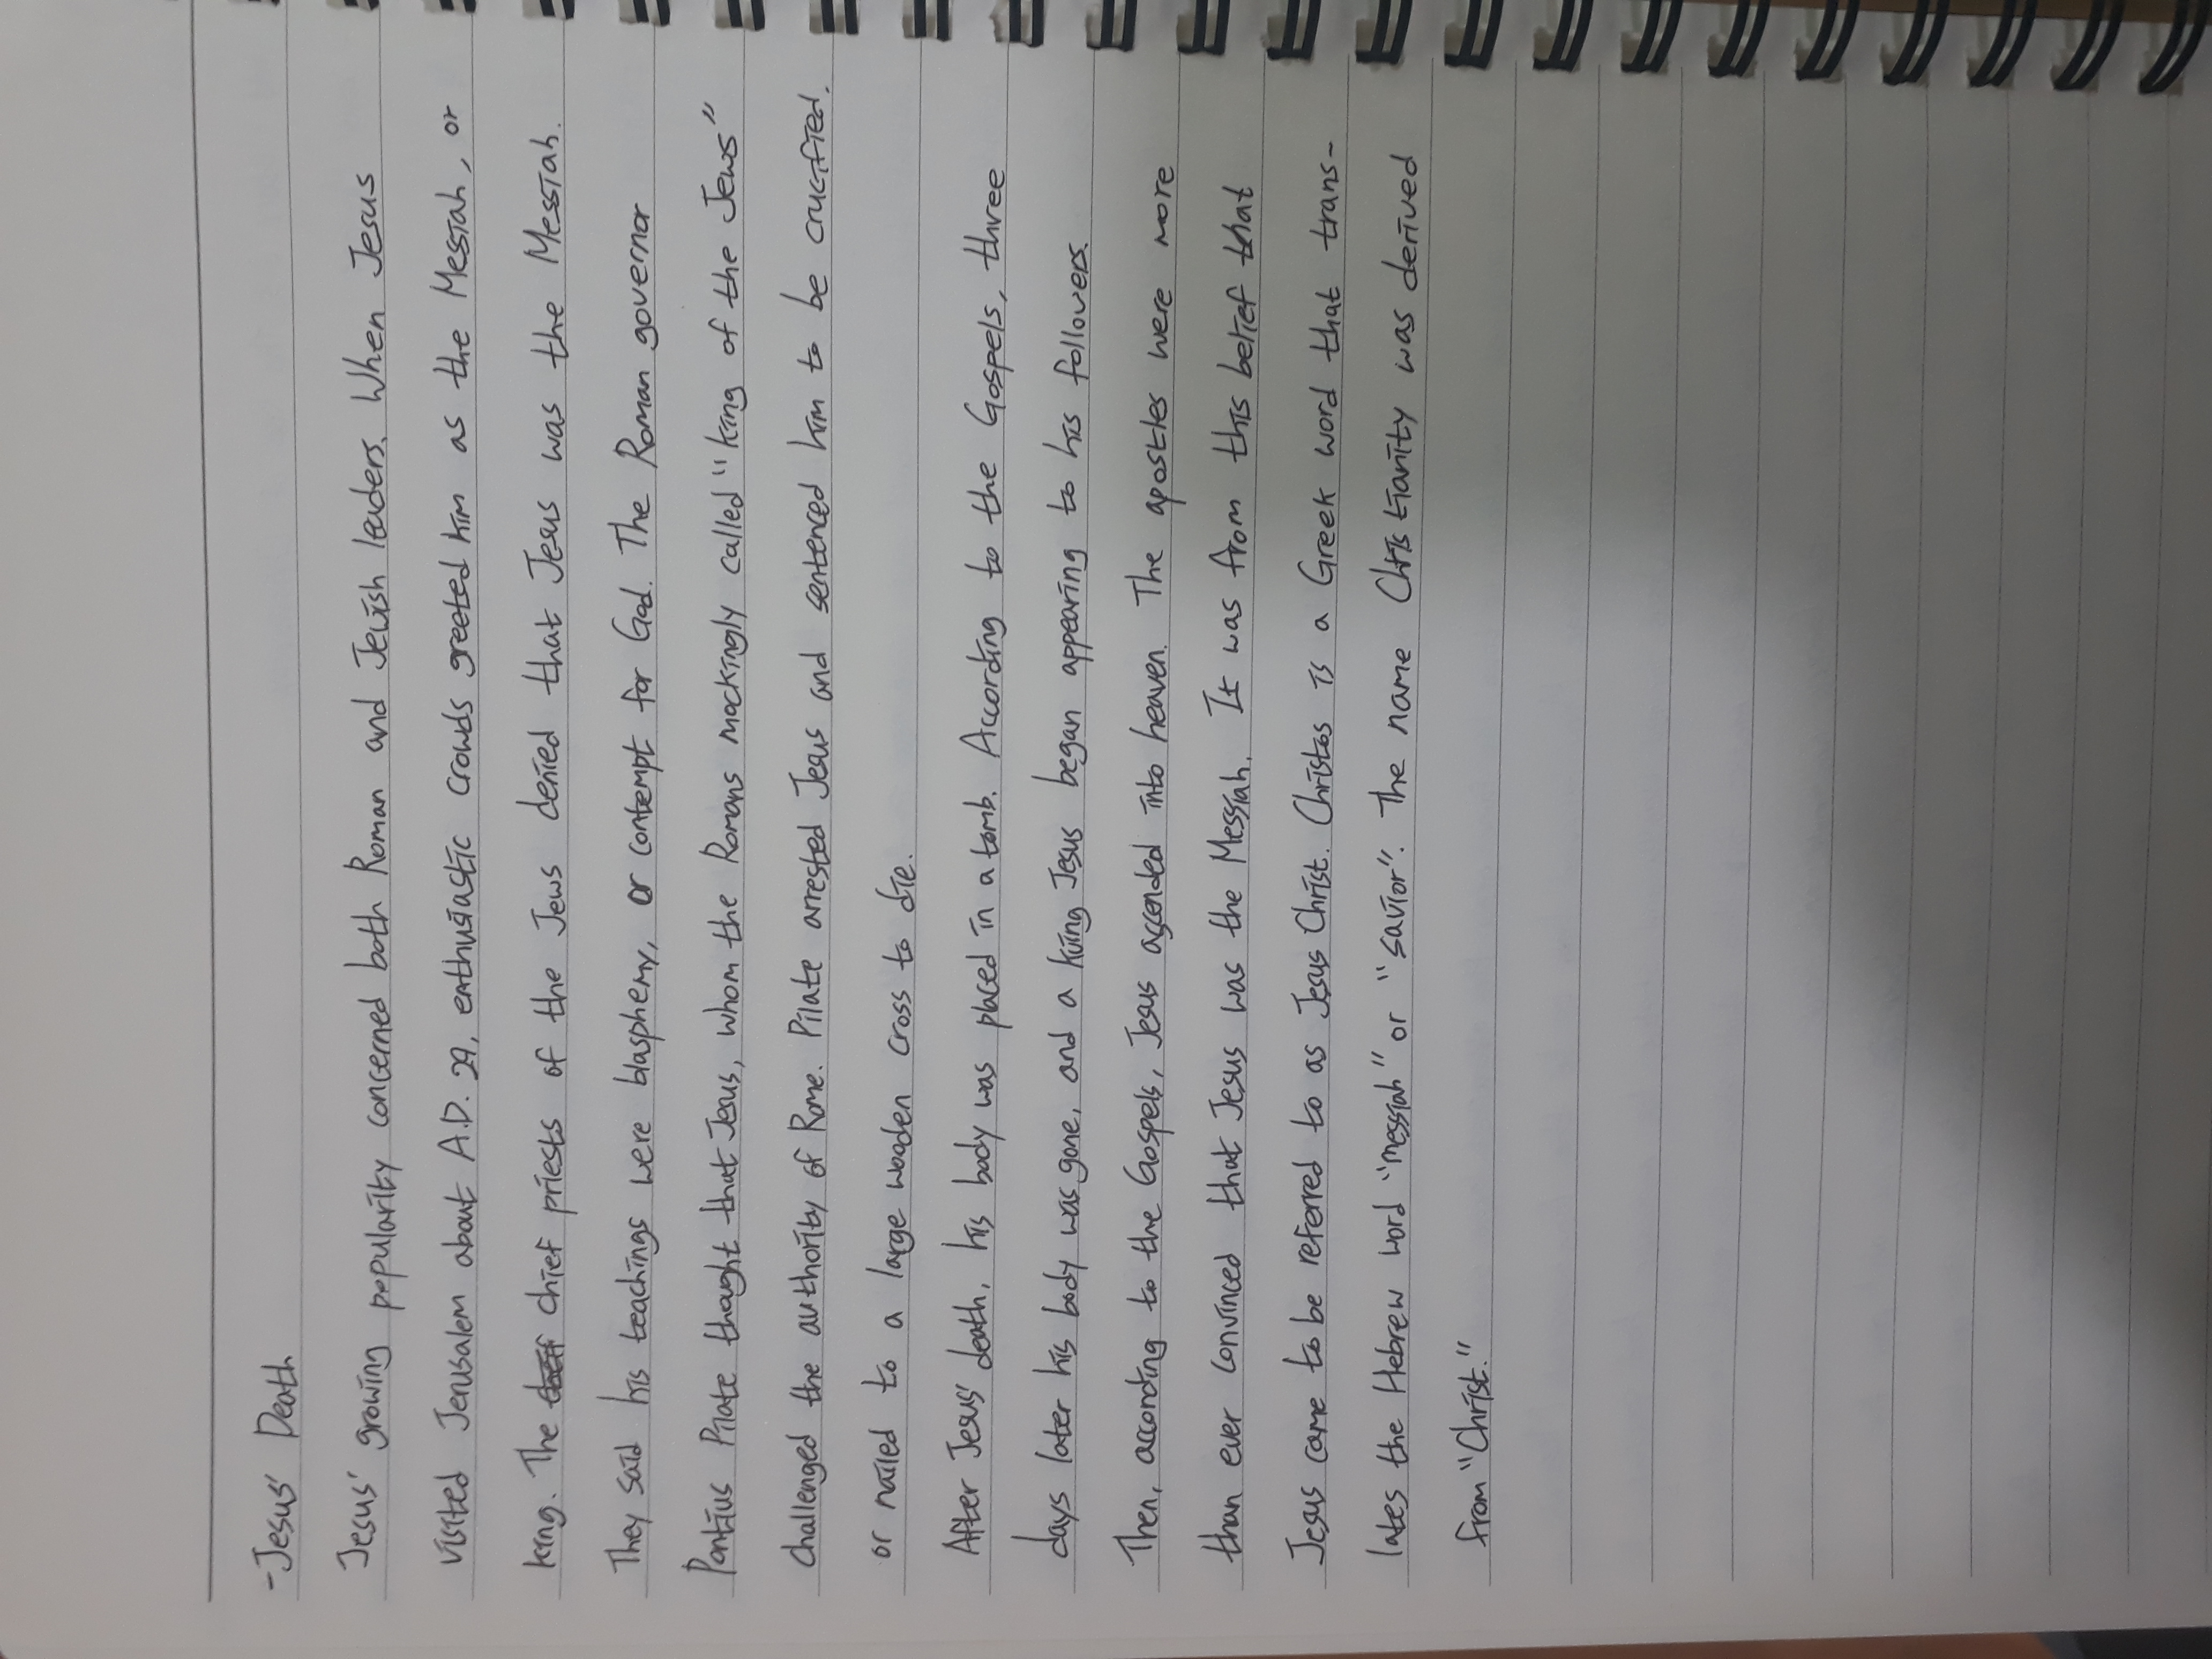 -Jesus' Death
Jesus' growing popularity concerned both Roman and Jewish leaders. When Jesus
visited Jerusalem about A.D. 29, enthusiastic crowds greeted him as the Messiah, or
king. The chief priests of the Jews denied that Jesus was the Messiah.
They said his teachings were blasphemy, or contempt for God. The Roman governor
Pontius Pilate thought that Jesus, whom the Romans mockingly called "king of the Jews"
challenged the authority of Rome. Pilate arrested Jesus and sentenced him to be crucified.
or nailed to a large wooden cross to die.
After Jesus' death, his body was placed in a tomb. According to the Gospels, three
days later his body was gone, and a living Jesus began appearing to his followers.
Then, according to the Gospels, Jesus ascended into heaven. The apostles were more
than ever convinced that Jesus was the Messiah. It was from this belief that
Jesus came to be referred to as Jesus Christ. Christos is a Greek word that trans-
lates the Hebrew word "messiah" or "savior". The name Christianity was derived
from "Christ."